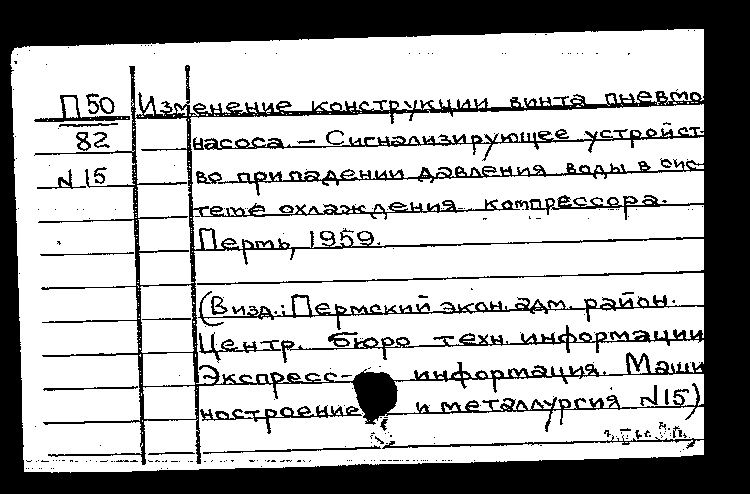 П50 Изменение конструкции винта пневмо
82 насоса. — Сигнализирующее устройст-
N 15 во при падении давления воды в сис-
теме охлаждения компрессора.
Пермь, 1959.
(В изд.: Пермский экон. адм. район.
Центр. бюро техн. информации
Экспресс- информация. Маши
ностроение и металлургия N15)